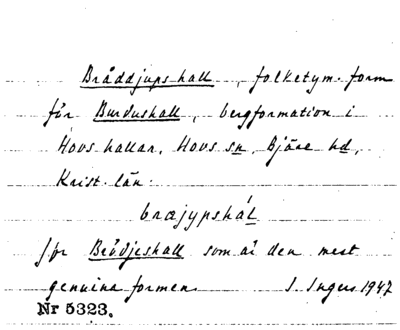 Bråddjupshall, folketym. form
för Burdushall, bergformation i
Hovs hallar, Hovs sn, Bjäre hd,
Krist. län.
bræjypshál
jfr Brödjeshall som är den mest
genuina formen. I. Ingers 1947
Nr 5323.